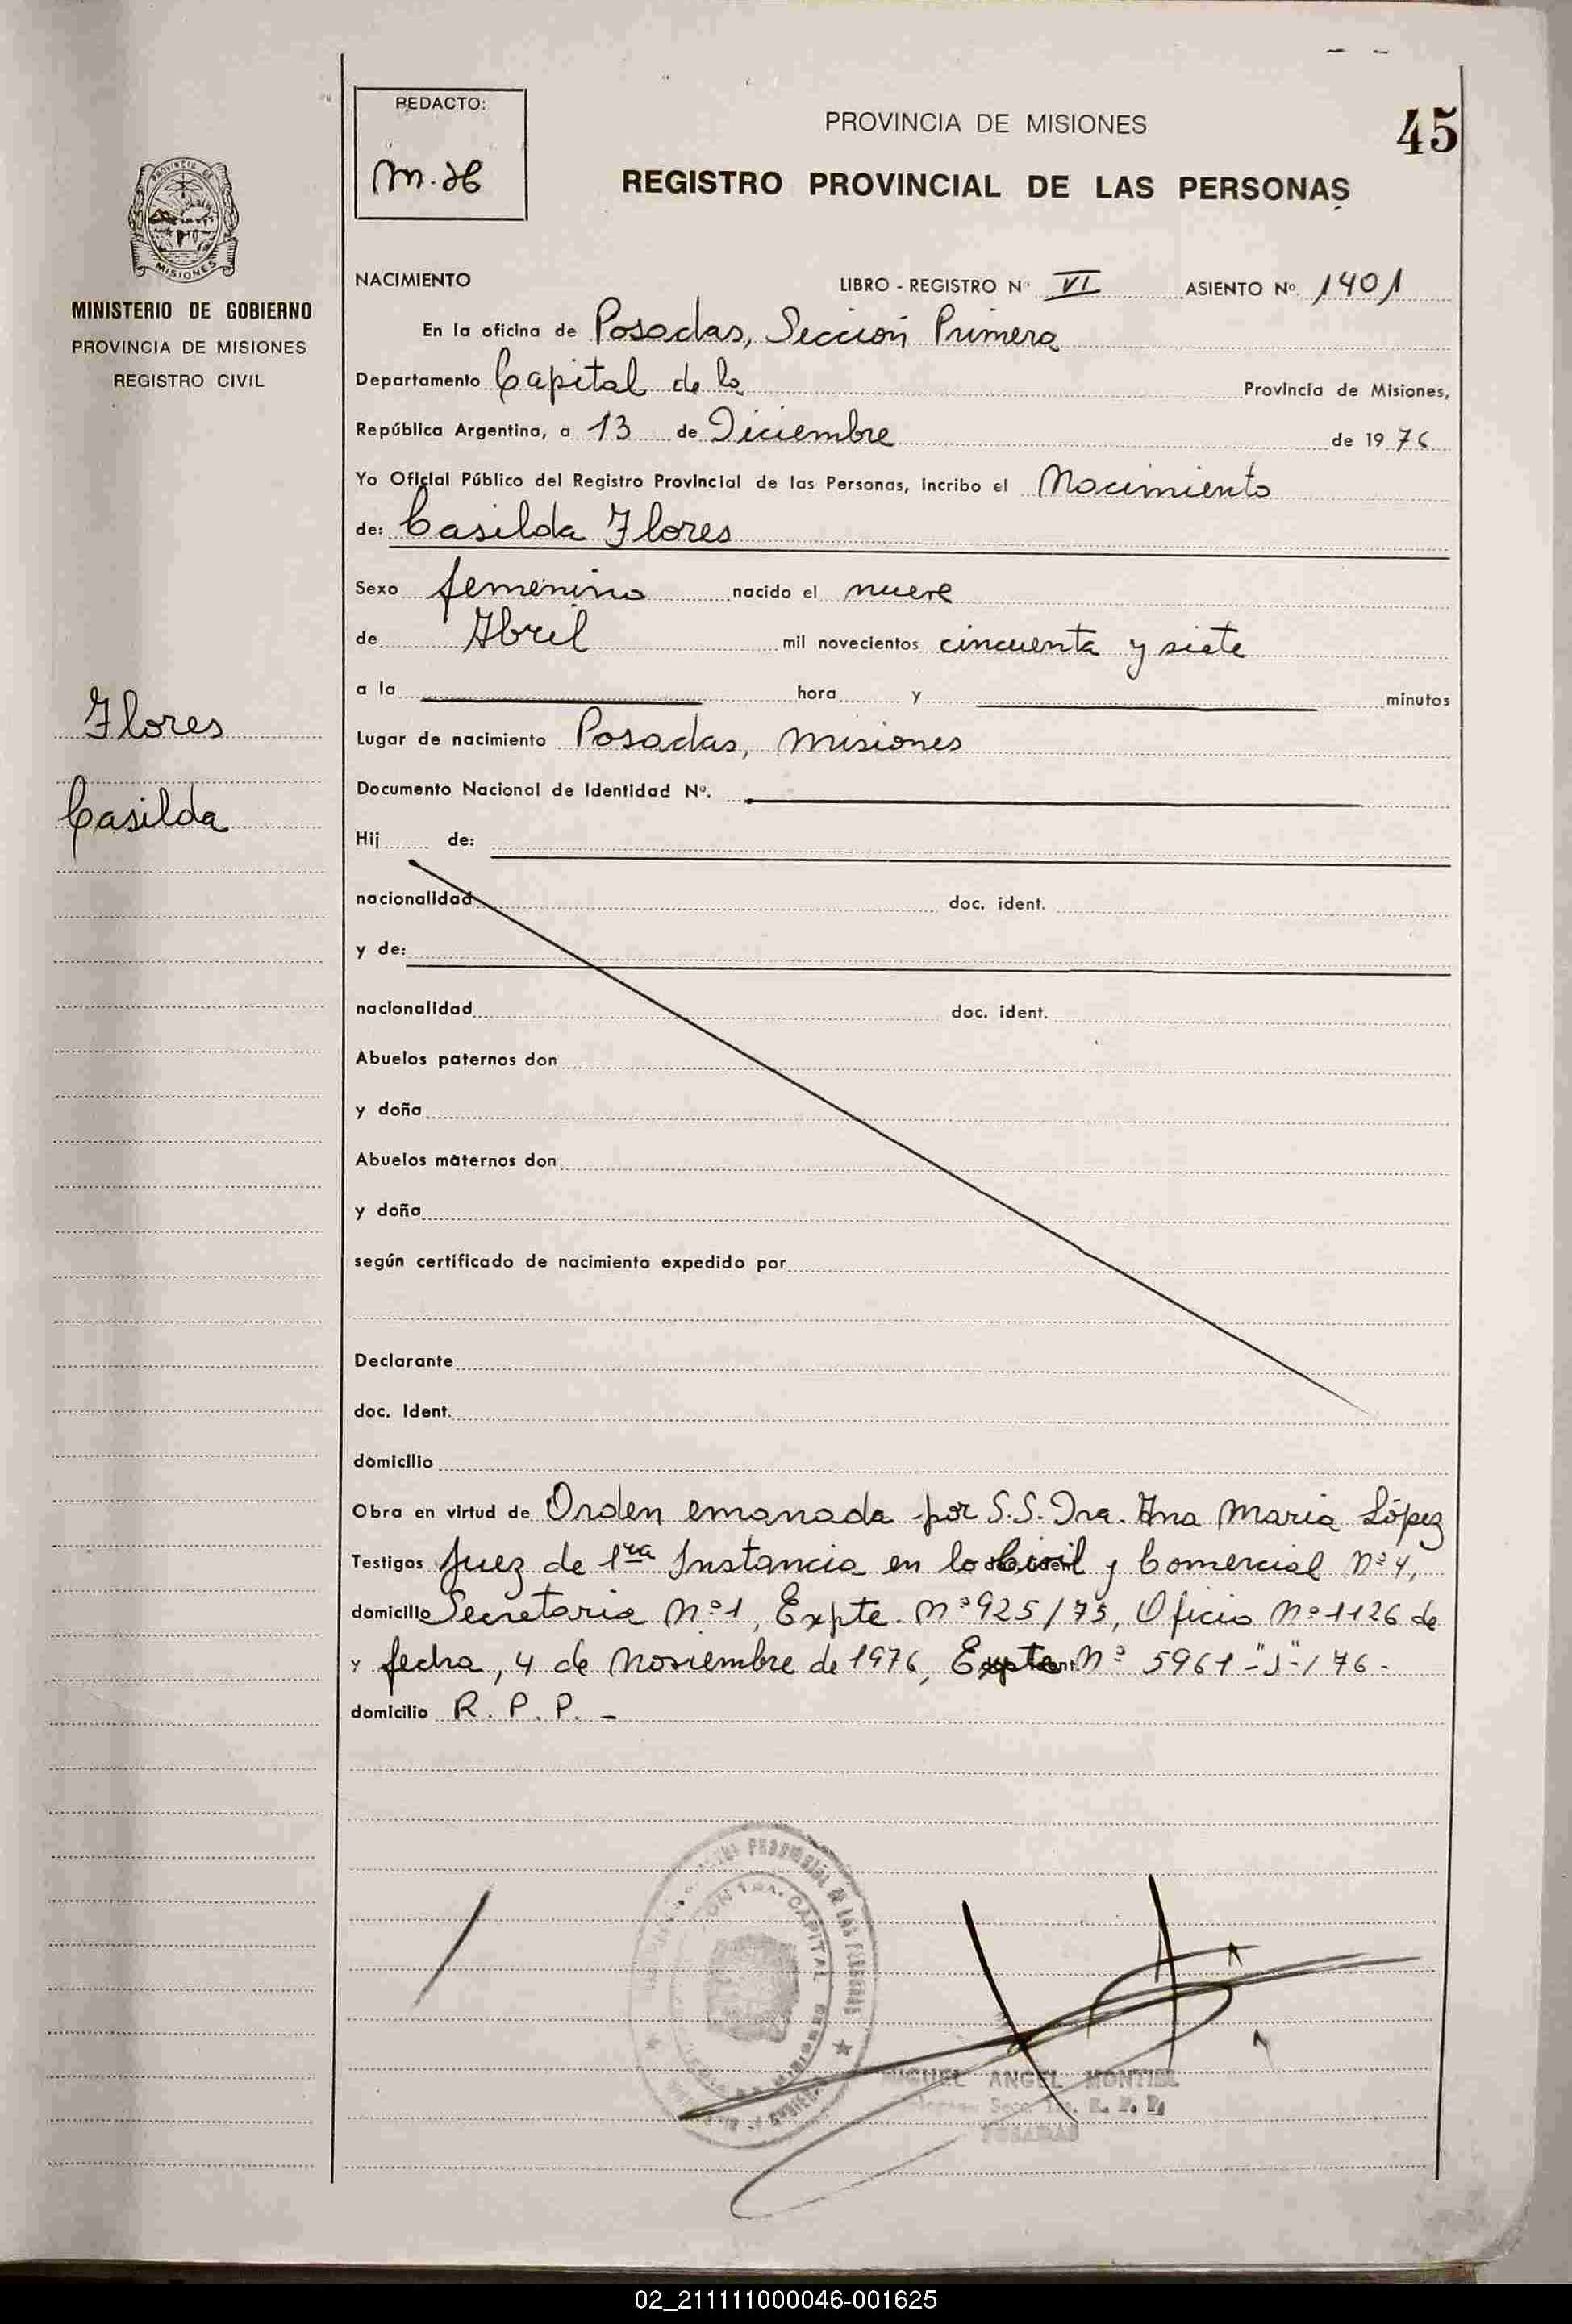 45
REDACTO:
PROVINCIA DE MISIONES
REGISTRO PROVINCIAL DE LAS PERSONAS
PROVINCIA DE
MISIONES
MINISTERIO DE GOBIERNO
PROVINCIA DE MISIONES
REGISTRO CIVIL
NACIMIENTO LIBRO - REGISTRO Nº VI ASIENTO Nº 1401
En la oficina de Posadas, Sección Primera
Departamento Capital de la Provincia de Misiones,
República Argentina, a 13 de Diciembre de 1976
Yo Oficial Público del Registro Provincial de las Personas, incribo el Nacimiento
de: Casilda Flores
Sexo femenino nacido el nueve
de Abril mil novecientos cincuenta y siete
a la hora y minutos
Flores
Lugar de nacimiento Posadas, Misiones
Documento Nacional de Identidad Nº.
Casilda
Hij de:
nacionalidad doc. ident.
y de:
nacionalidad doc. ident.
Abuelos paternos don
y doña
Abuelos maternos don
y doña
según certificado de nacimiento expedido por
Declarante
doc. Ident.
domicilio
Obra en virtud de Orden emanada por S.S. Dra. Ana Maria López
Testigos Juez de 1ra Instancia en lo Civil y Comercial Nº 4,
domicilio Secretaria Nº 1, Expte. Nº 925/75, Oficio Nº 1126 de
y fecha, 4 de Noviembre de 1976, Expte Nº 5961-"J"-/76-
domicilio R. P. P. -
PROVINCIAL DE LAS PERSONAS
CAPITAL
MIGUEL ANGEL MONTIEL
POSADAS
02_211111000046-001625